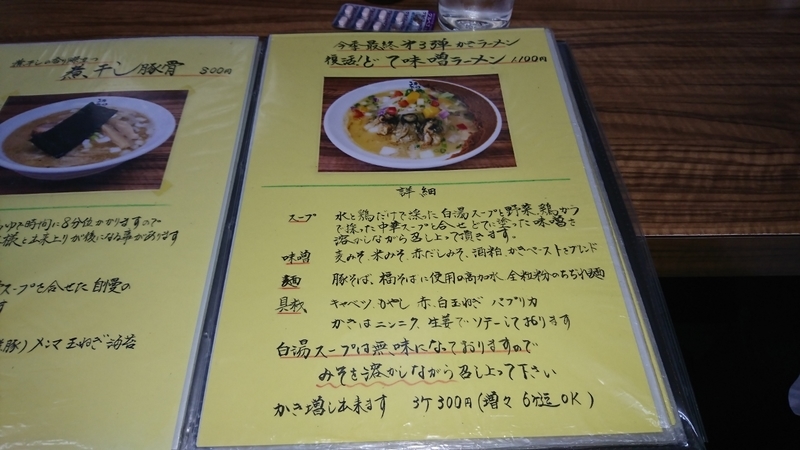 煮干し豚骨 800円
ゆで時間に8分位かかりますので
様と出来上りが後になる事があります
スープを合せた自慢の
豚)メンマ玉ねぎ海苔
今季最終 第3弾かきラーメン
復活!どて味噌ラーメン 1,100円
詳細
スープ 水と鶏だけで採った白湯スープと野菜、鶏がら
で採った中華スープと合せどてに塗った味噌を
溶かしながら召し上って頂きます。
味噌 麦みそ 米みそ 赤だしみそ、酒粕 かきペーストをブレンド
麺 豚そば、福そばに使用の高加水 全粒粉のちぢれ麺
具材 キャベツ、もやし 赤、白玉ねぎ パプリカ
かきはニンニク、生姜でソテーしております
白湯スープは無味になっておりますので
みそを溶かしながら召し上って下さい
かき増し出来ます 3ケ300円(増々6ケ迄OK)